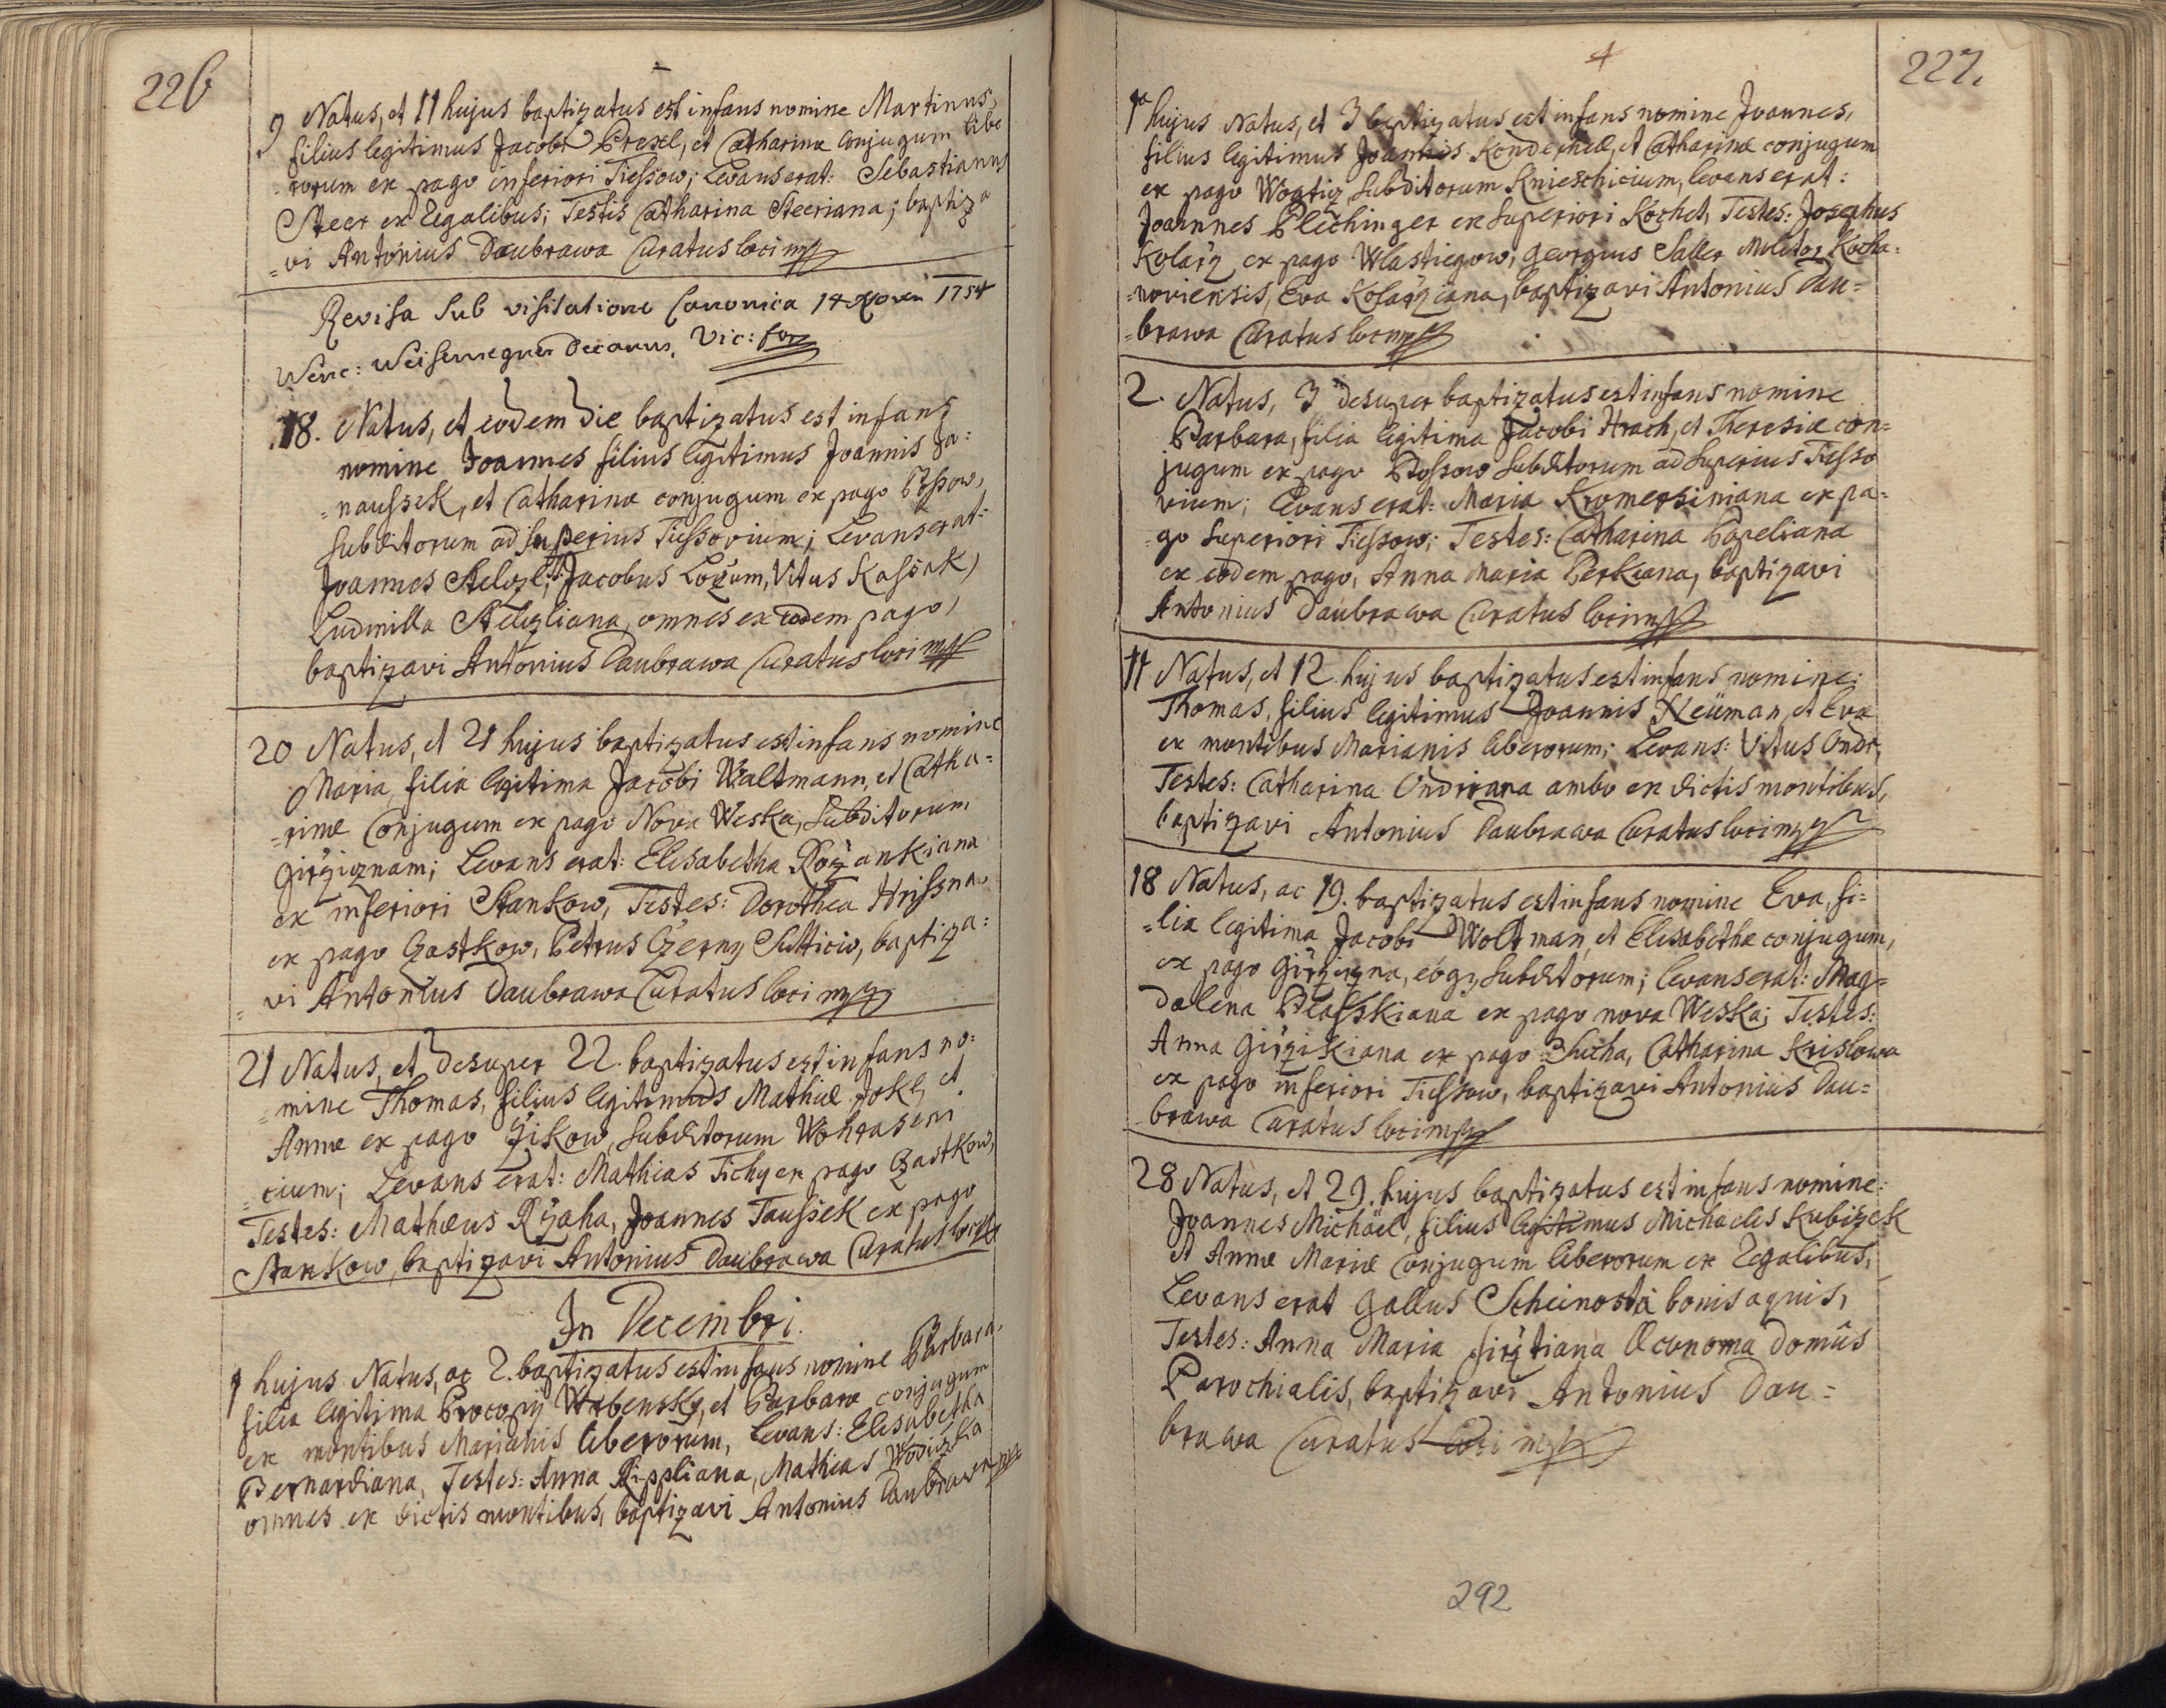 226
9 Natus, et 11 hujus baptizatus est infans nomine Martinus,
filius legitimus Jacobi Prexl, et Catharinæ conjugum libe
rorum ex pago inferiori Tiessow; Levans erat: Sebastianus
Steer ex Regalibus; Testis Catharina Steeriana; baptiza
=vi Antonius Daubrawa Curatus loci mp
Revisa sub visitatione Canonica 14 Noven 1754
Wenc: Weisenregner Decanus, Vic: for
18. Natus, et eodem die baptizatus est infans
nomine Joannes filius legitimus Joannis Ja=
=naussek, et Catharinæ conjugum ex pago Possow,
subditorum ad superius Tiessovium; Levans erat:
Joannes Stelozl, Jacobus Lozum, Vitus Kassak,
Ludmilla Stelozliana, omnes ex eodem pago,
baptizavi Antonius Daubrawa Curatus loci mp
20 Natus, et 21 hujus baptizatus est infans nomine
Maria, filia legitima Jacobi Waltmann, et Catha=
=rinæ Conjugum ex pago Nova Weska, subditorum
Girziznam; Levans erat: Elisabetha Rozankiana
ex inferiori Stankow, Testes: Dorothea Hrissna,
ex pago Czastkow, Petrus Czerny Suttició, baptiza=
=vi Antonius Daubrawa Curatus loci mp
21 Natus, et desuper 22. baptizatus est infans no=
=mine Thomas, filius legitimus Mathiæ Jokl, et
Annæ ex pago Zikow, subditorum Wohraseni
=cium; Levans erat: Mathias Tichy ex pago Czastkow,
Testes: Mathæus Rzaha, Joannes Taussek ex pago
Stankow, baptizavi Antonius Daubrawa Curatus loci mp
In Decembri.
1 hujus Natus, ac 2. baptizatus est infans nomine Barbara,
filia legitima Procopij Wrbensky, et Barbaræ conjugum
ex montibus Marianis liberorum, Levans: Elisabetha
Bernardiana, Testes: Anna Rippliana, Mathias Wodiczka
omnes ex dictis montibus, baptizavi Antonius Daubrawa mp
227.
1a hujus Natus, et 3 baptizatus est infans nomine Joannes,
filius legitimus Joannis Kondernal, et Catharinæ conjugum
ex pago Wogtiz, subditorum Knieschicium, levans erat:
Joannes Plechinger ex superiori Kochet, Testes: Josephus
Kolarz ex pago Wlastiegow, Georgius Saller Molitor Kocha=
=noviensis, Eva Kolarziana, baptizavi Antonius Dau=
=brawa Curatus loci mp
2. Natus, 3 desuper baptizatus est infans nomine
Barbara, filia legitima Jacobi Hrach, et Theresiæ con=
jugum ex pago Possow subditorum ad superius Tiesso
vium; Levans erat: Maria Kromersiniana ex pa=
=go superiori Tiessow; Testes: Catharina Papeliana
ex eodem pago, Anna Maria Perkiana, baptizavi
Antonius Daubrawa Curatus loci mp
11 Natus, et 12. hujus baptizatus est infans nomine:
Thomas, filius legitimus Joannis Neüman, et Evæ
ex montibus Marianis liberorum; Levans: Vitus Ondr,
Testes: Catharina Ondriana ambo ex dictis montibus,
baptizavi Antonius Daubrawa Curatus loci mp
18 Natus, ac 19. baptizatus est infans nomine Eva, fi=
=lia legitima Jacobi Woltman, et Elisabethæ conjugum,
ex pago Girzizna, eog subditorum; levans erat: Mag=
dalena Plasskiana ex pago nova Weska; Testes:
Anna Girzikiana ex pago Sucha, Catharina Krislowa
ex pago inferiori Tiessow, baptizavi Antonius Dau=
brawa Curatus loci mp
28 Natus, et 29. hujus baptizatus est infans nomine:
Joannes Michäel, filius legitimus Michaelis Kubizek
et Annæ Mariæ Conjugum liberorum ex Regalibus,
Levans erat Gallus Scheinosta bonis aquis,
Testes: Anna Maria Jirztiana Oeconoma domûs
Parochialis, baptizavi Antonius Dau=
brawa Curatus loci mp
292